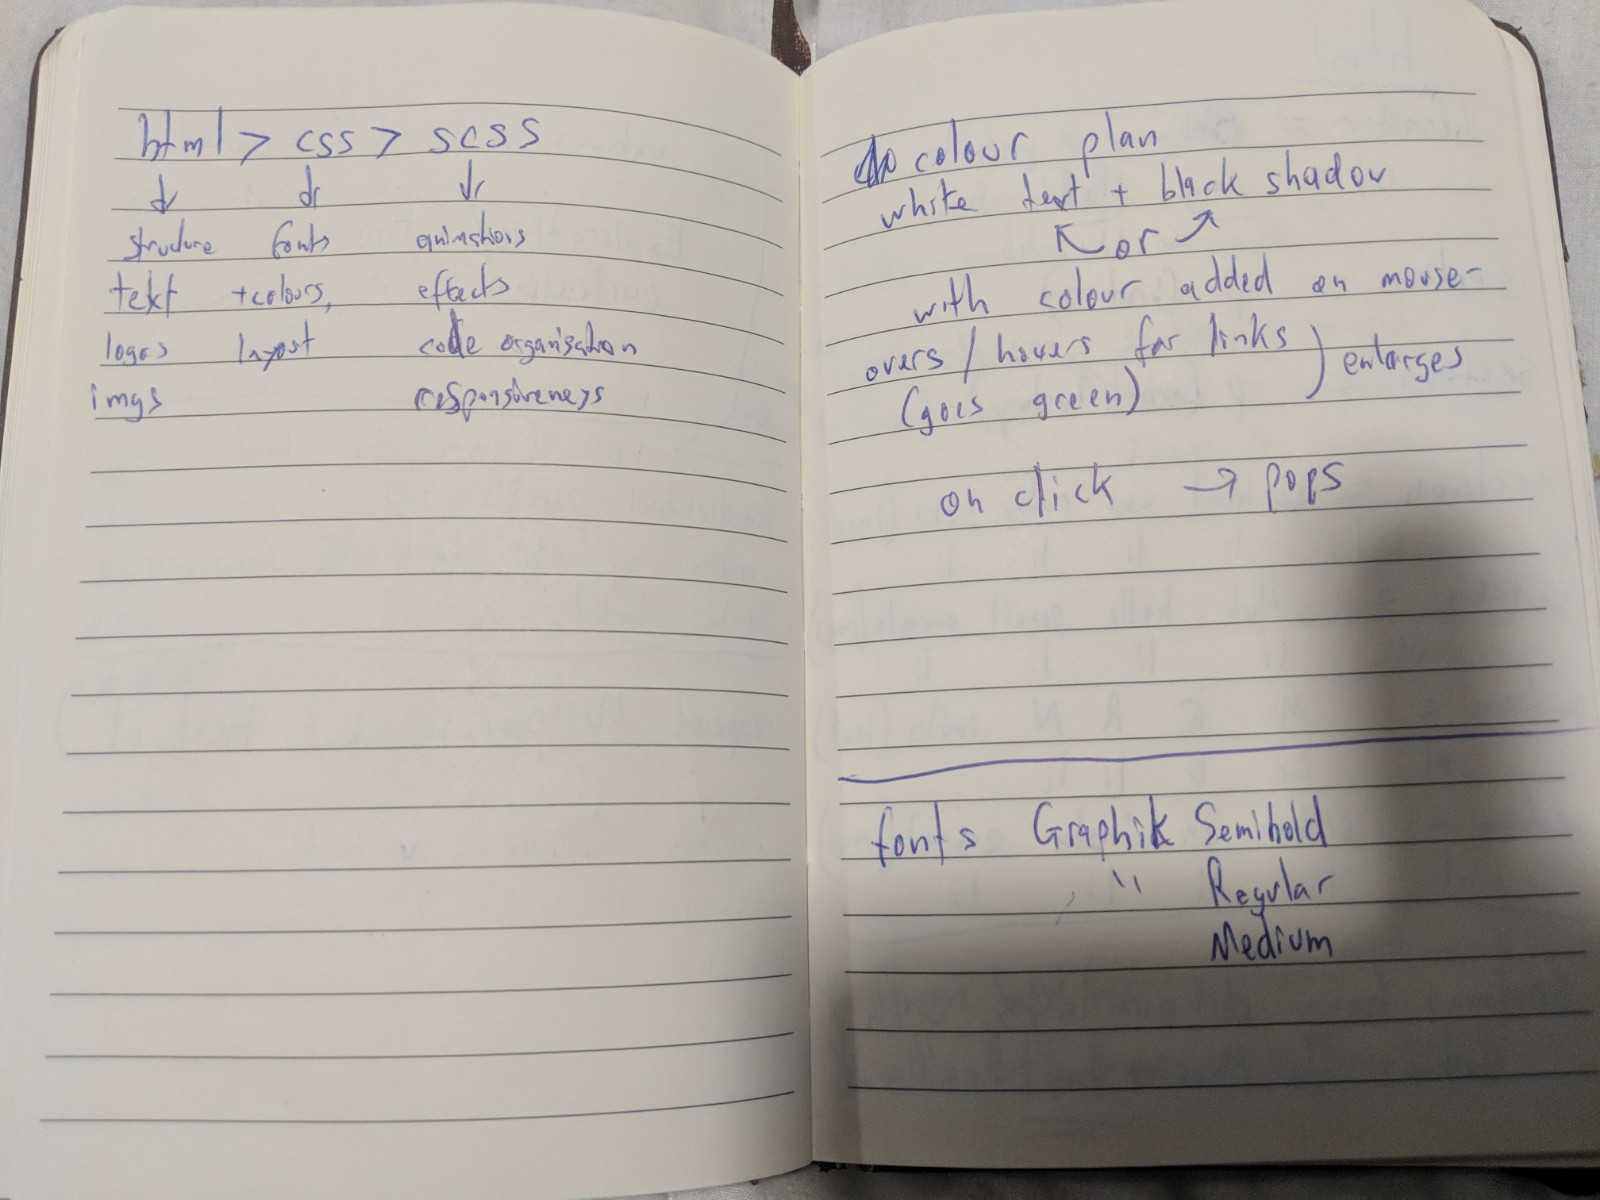 html > css > scss
↓ ↓ ↓
structure fonts animations
text +colours, effects
logos layout code organisation
imgs responsiveness
colour plan
white text + black shadow
↖ or ↗
with colour added on mouse-
overs / hovers for links
) enlarges
(goes green)
on click → pops
fonts Graphik Semibold
" Regular
Medium